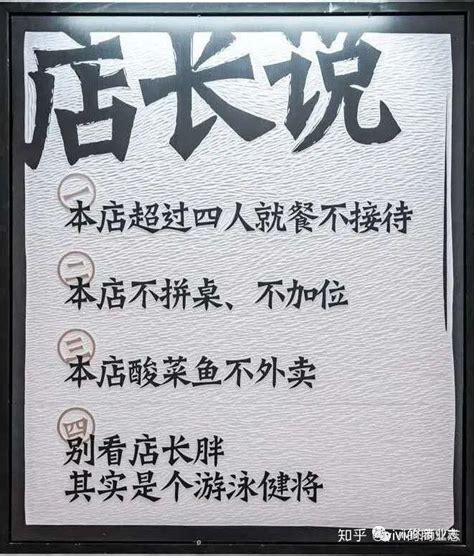 店长说
一
本店超过四人就餐不接待
二
本店不拼桌、不加位
三
本店酸菜鱼不外卖
四
别看店长胖
其实是个游泳健将
知乎